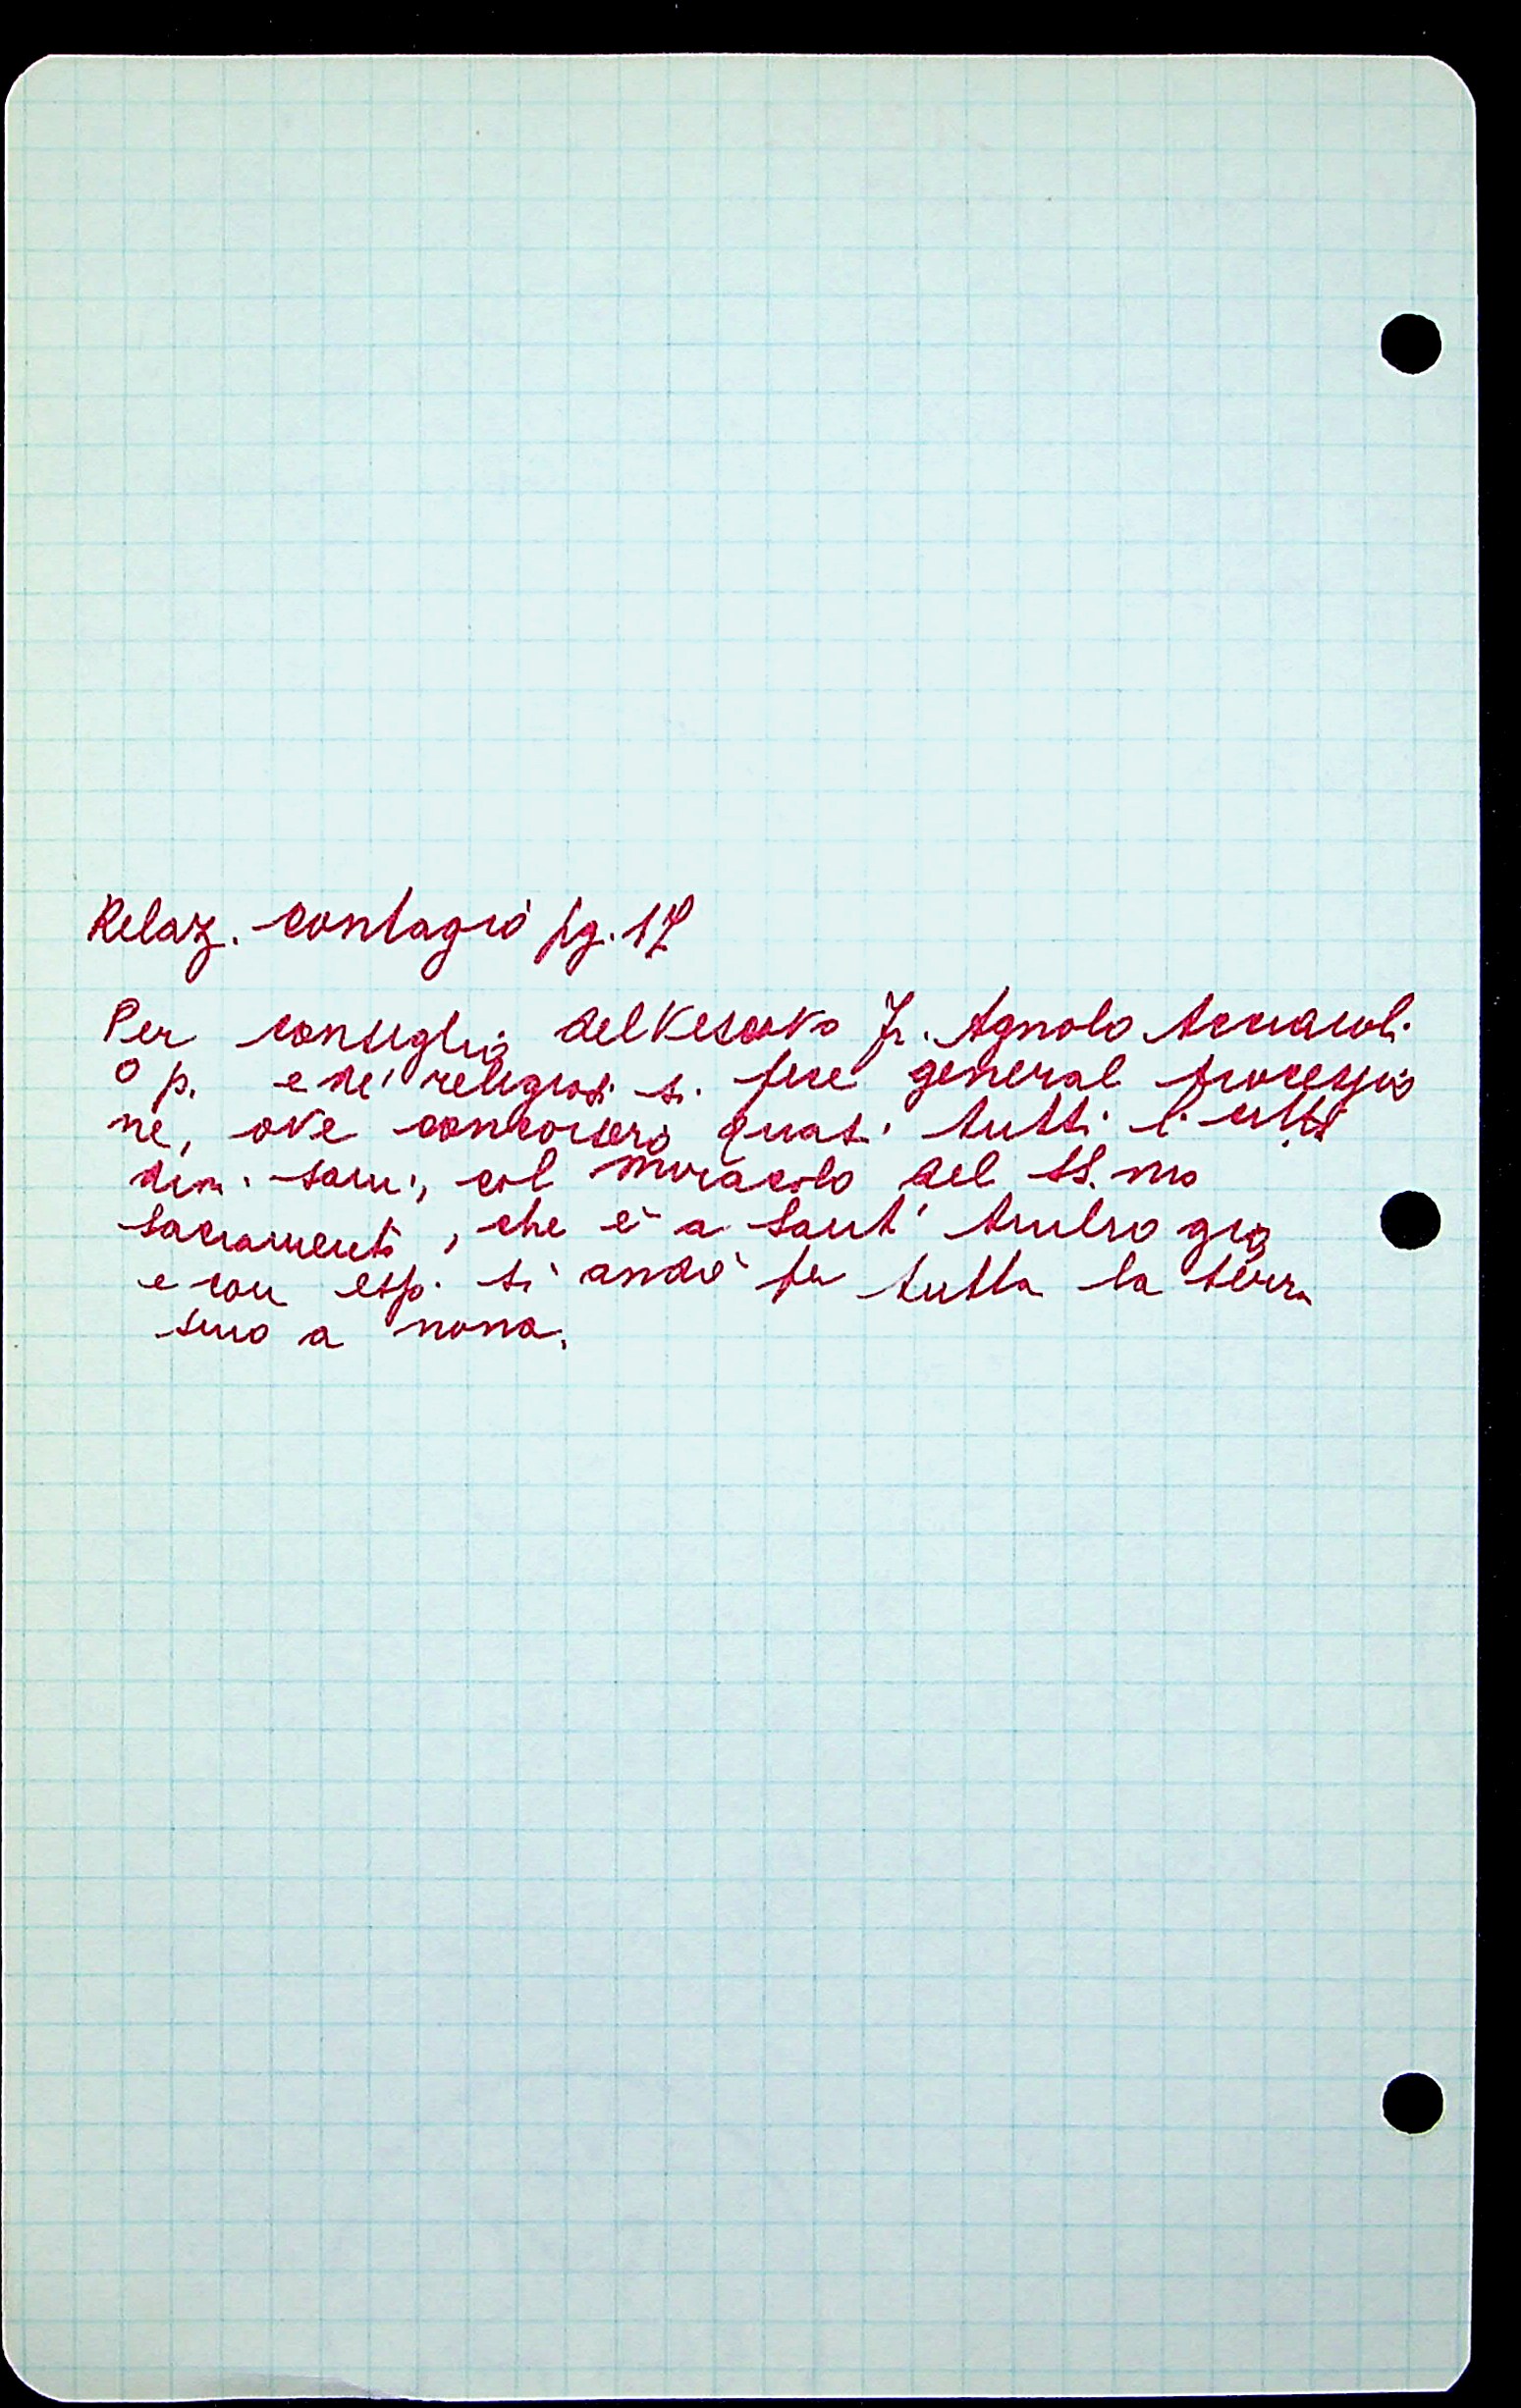 Relaz. contagio pg. 17
Per consiglio del Vescovo Fr. Agnolo Acciaioli
O p. e de' religiosi si fece general processio
ne, ove concorsero quasi tutti li citta
dini sani, col miracolo del SS.mo
Sacramento, che è a Sant' Ambrogio
e con esp. si andò per tutta la terra
sino a nona.